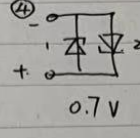 ④
-
1 2
+
0.7 V